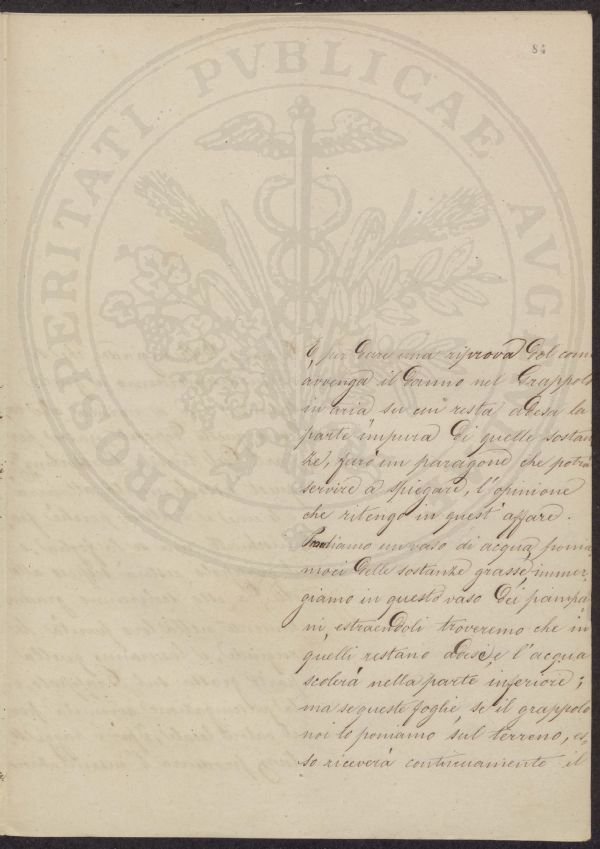 84
PROSPERITATI PVBLICAE AVGENDAE
E per dare una riprova del come
avvenga il danno nel Grappolo
in aria su cui resta adesa la
parte impura di quelle sostan
ze, farò un paragone che potrà
servire a spiegare, l'opinione
che ritengo in quest'affare.
Prendiamo un vaso di acqua, ponia
moci delle sostanze grasse, immer
giamo in questo vaso dei pampa
ni, estraendoli troveremo che in
quelli restano adese, e l'acqua
scolerà nella parte inferiore;
ma se queste foglie, se il grappolo
noi lo poniamo sul terreno, es
so riceverà continuamente il